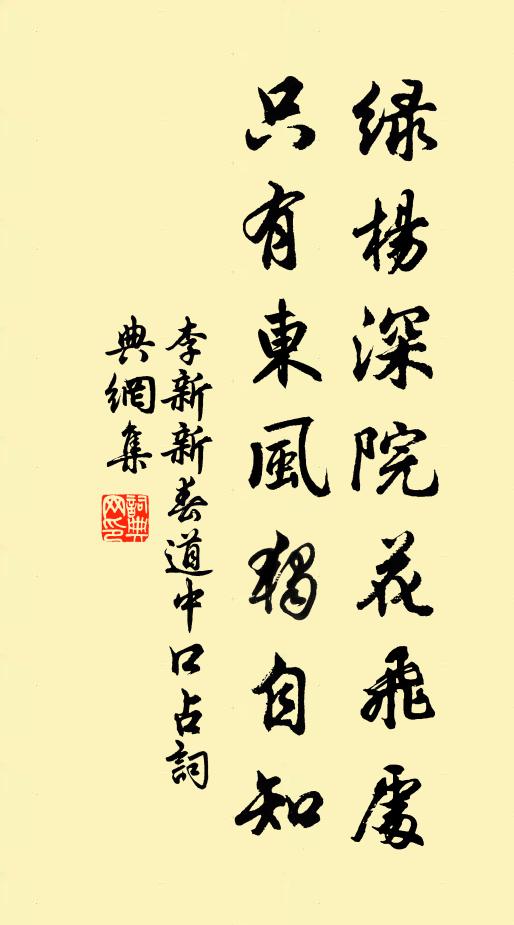 绿楊深院花飛處
只有東風獨自知
李新新春道中口占詞
典網集
詞典
网印